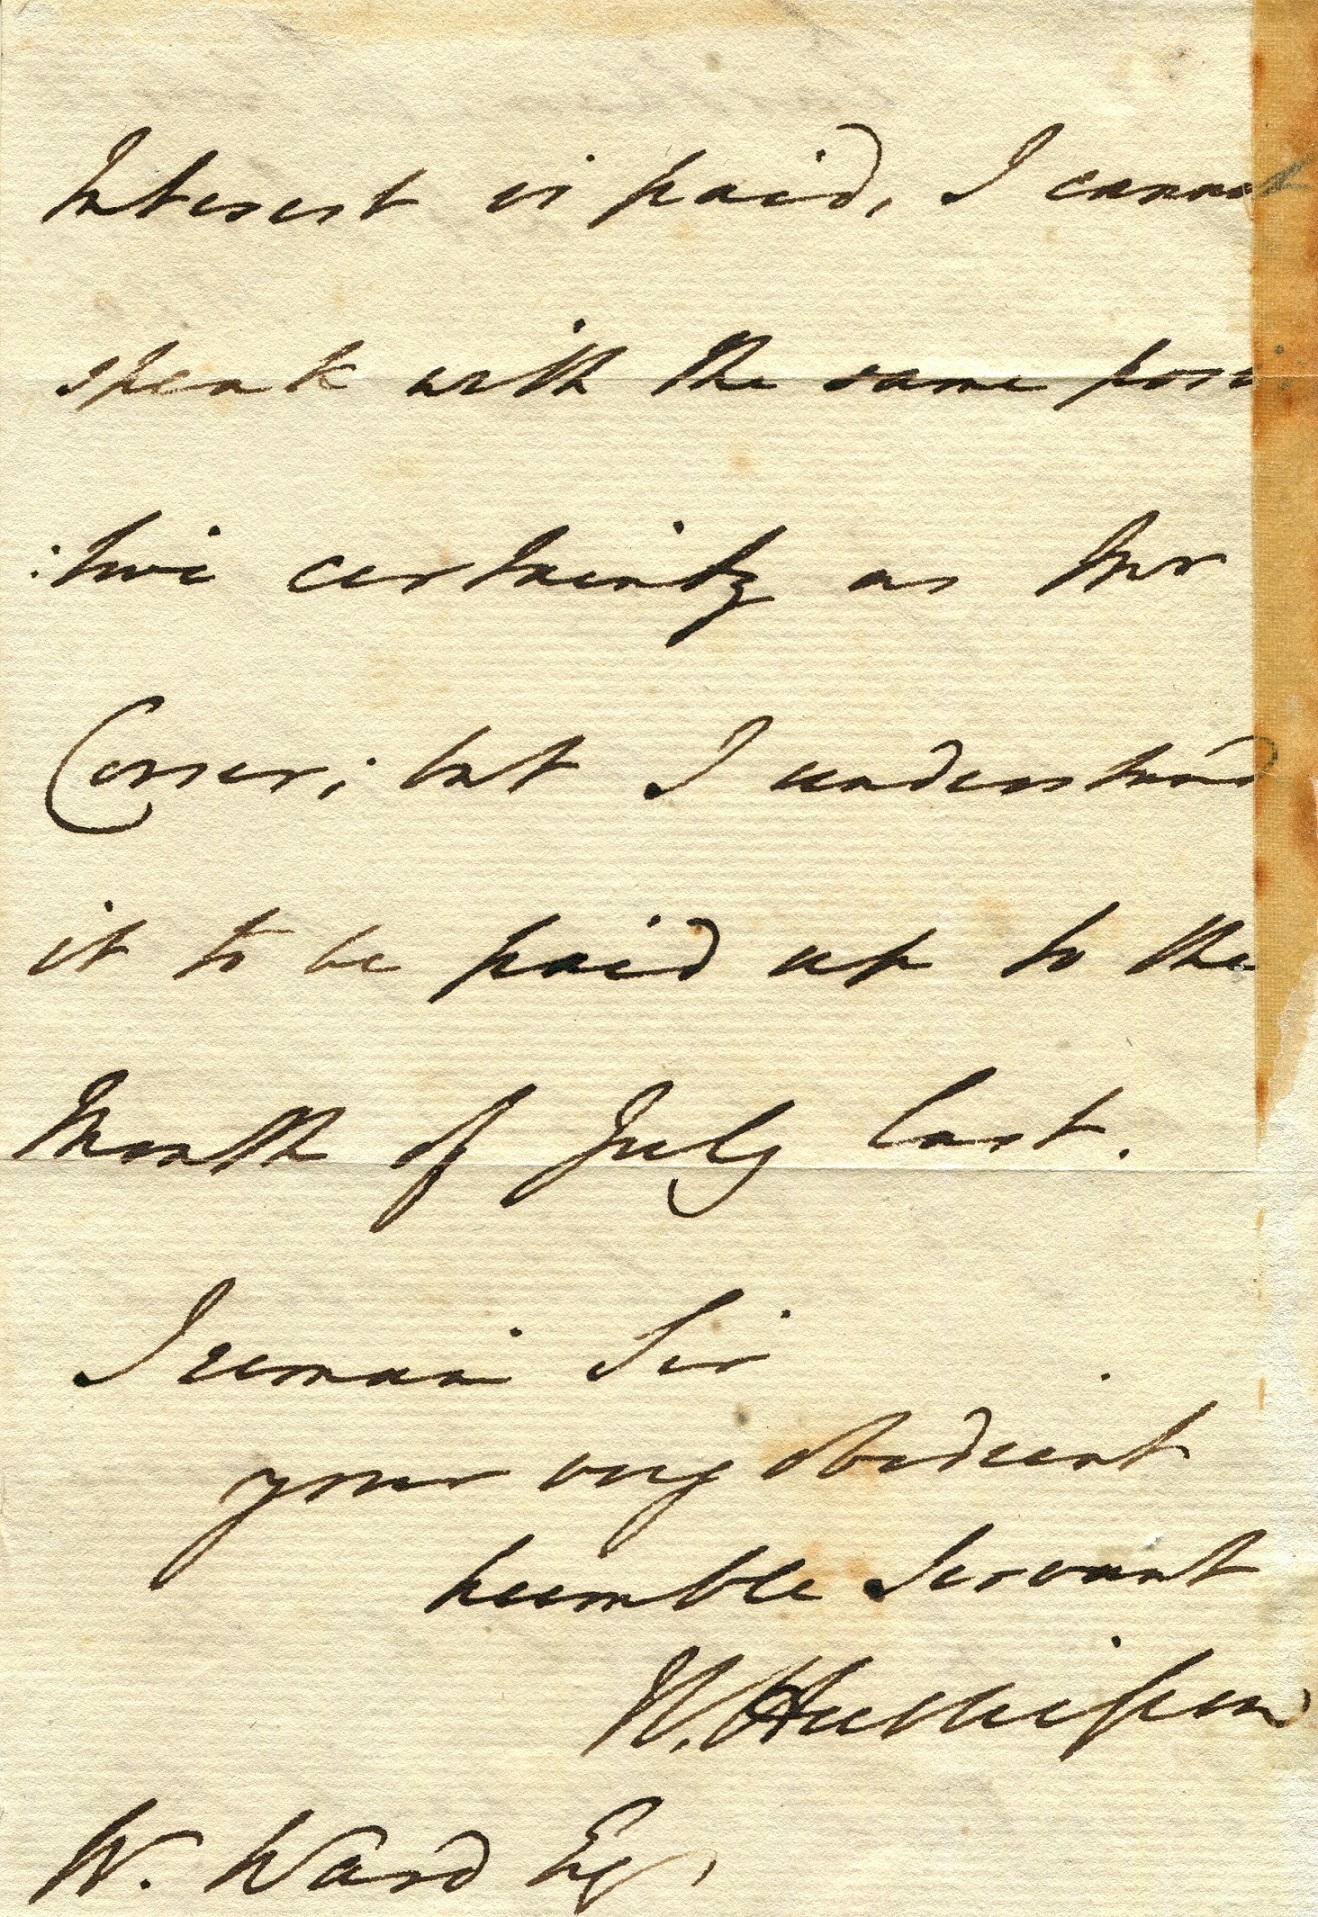 Interest is paid, I cannot
speak with the same posi
:tive certainty as Mr
Corser; but I understand
it to be paid up to the
Month of July last.
I remain Sir
your very obedient
humble Servant
W. Ward Esq,